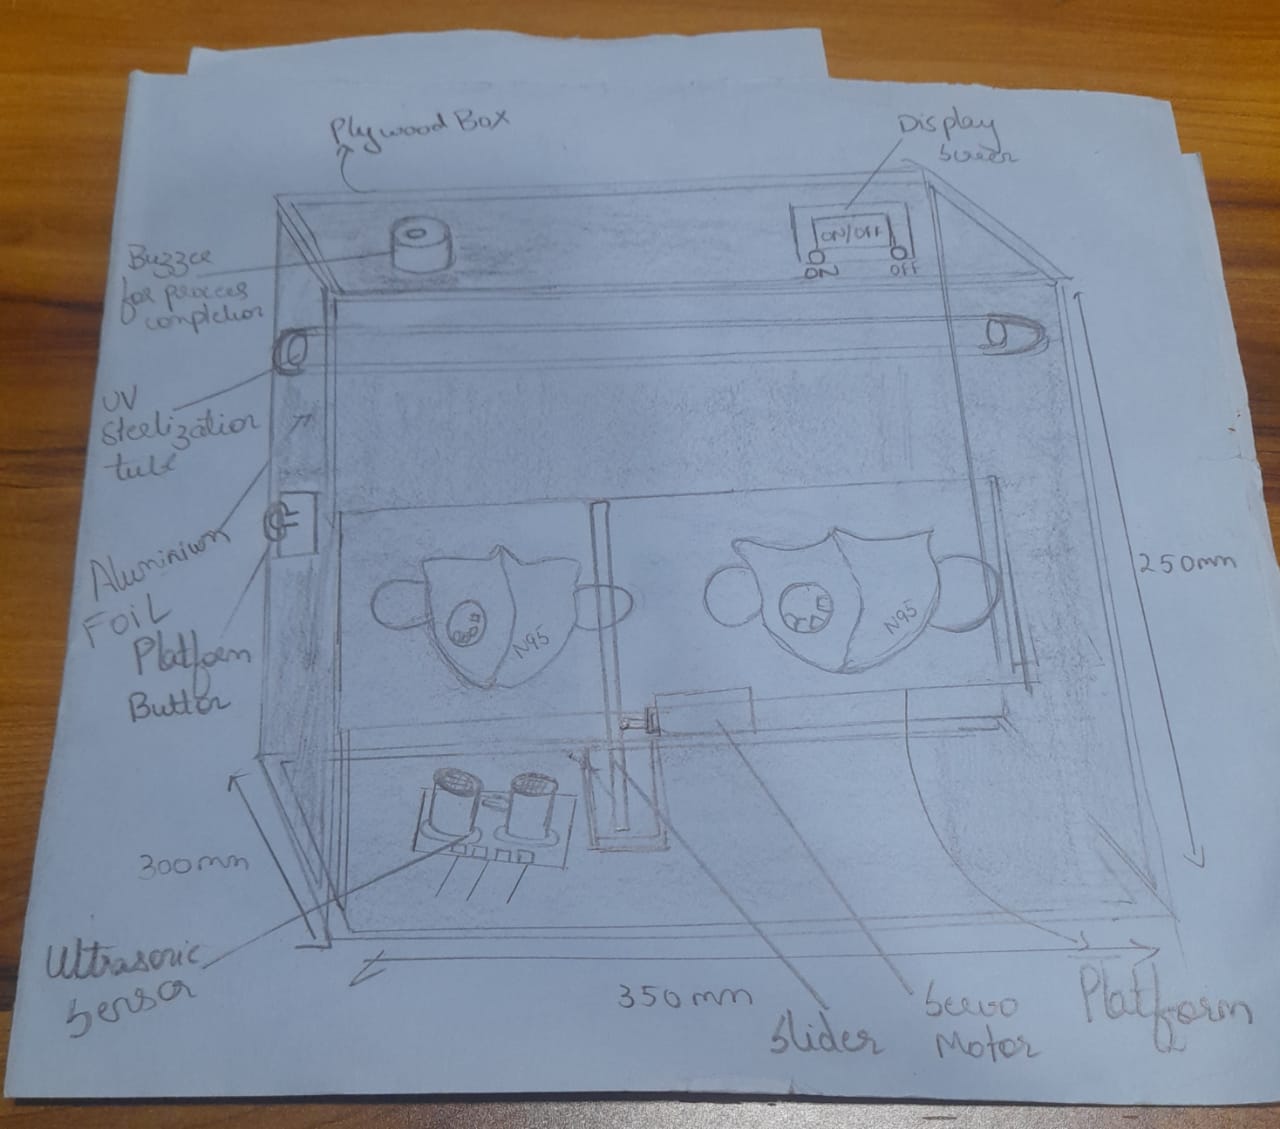 Plywood Box
Display
Screen
ON/OFF
ON
OFF
Buzzer
for process
completion
UV
Sterlization
tube
Aluminium
FOIL
Platform
Button
N95
N95
250mm
300mm
Ultrasonic
Sensor
350mm
Slider
Servo
Motor
Platform